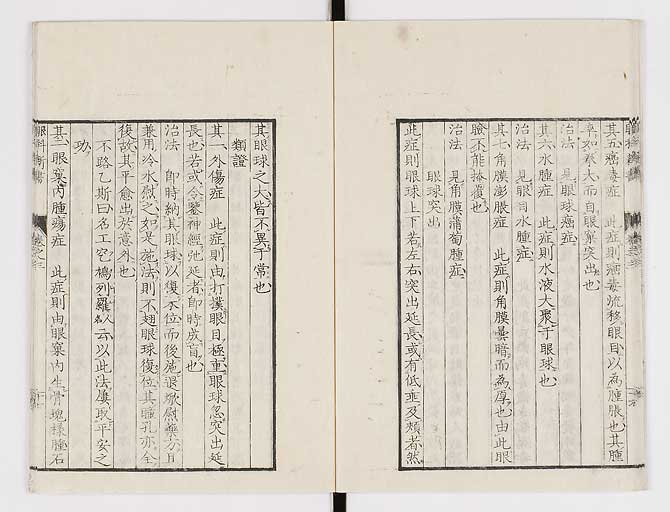 其五癌毒症 此症則癌毒流移眼目以為腫脹也其腫
率如拳大而自眼窠突出也
治法 見眼球癌症
其六水腫症 此症則水液大聚于眼球也
治法 見眼目水腫症
其七角膜膨脹症 此症則角膜曇暗而為厚也由此眼
瞼不能掩覆也
治法 見角膜蒲萄腫症
眼球突出
此症則眼球上下若左右突出延長或有低垂及頰者然
其眼球之大皆不異于常也
類證
其一外傷症 此症則由打撲眼目極重眼球忽突出延
長也若或令鑒神經弛延者即時成盲也
治法 即時納其眼球以復本位而後施退
兼用冷水慰之如是施法則不翅眼球復位其瞳孔亦全
復故其平愈出於意外也
不路乙斯曰名工它鳩列羅人名云以此法屢取平安之
功
其二眼窠內腫瘍症 此症則由眼窠內生骨塊様腫右
眼科新書 卷之三